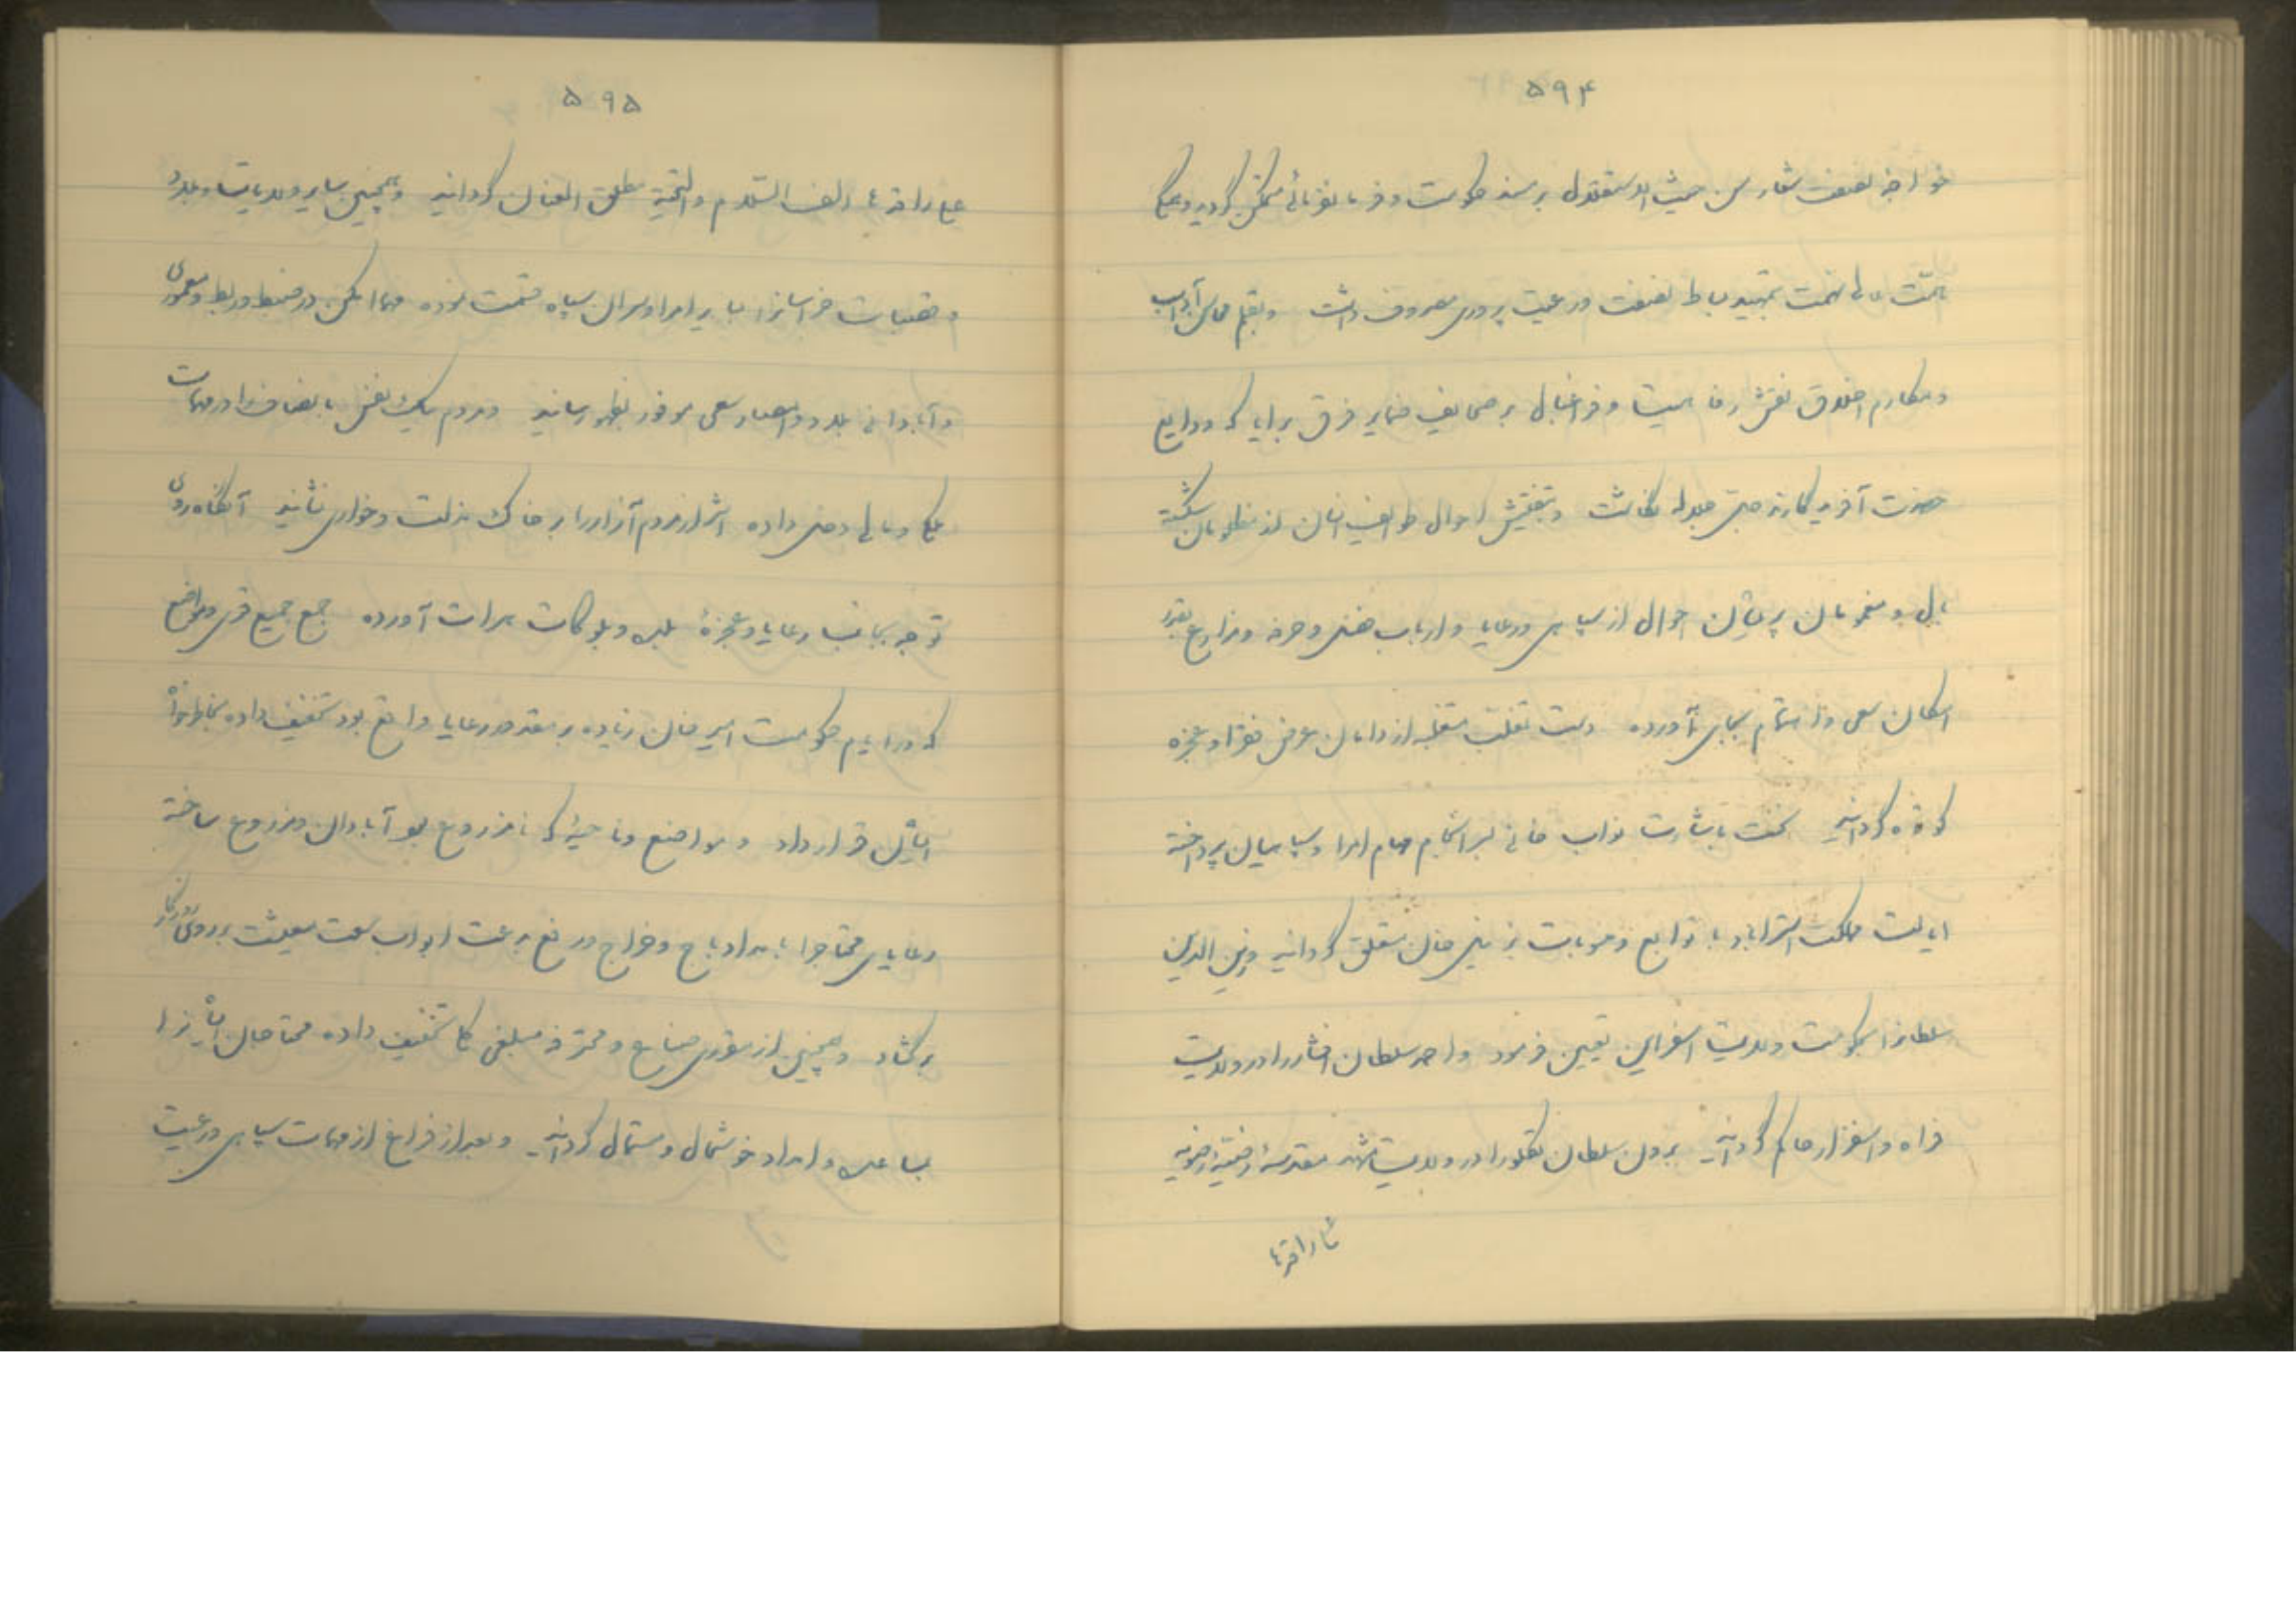 ۵۹۴
خواجه نصفت شعار من حیث الاستقلال بر مسند حکومت و فرمانفرمائی متمکن گردید و همگی
همّت عالی نهمت بتمهید بساط نصفت و رعیت پروری مصروف داشت و بقلم محاسن آداب
و مکارم اخلاق نقش رفاهیت و فراغبال بر صحایف ضمایر فرق برایا که ودایع
حضرت آفریدگارند جلّ جلاله نگاشت و بتفتیش احوال طوایف انسان از مظلومان شکسته
بال و مغمومان پریشان احوال از سپاهی و رعایا و ارباب هنر و حرفه و مزارع بقدر
امکان سعی و اهتمام بجای آورده دست تغلب متغلبه از دامان عرض فقرا و عجزه
کوتاه گردانید نخست باشارت نواب خانی بسرانجام مهام امرا و سپاهیان پرداخته
ایالت مملکت استراباد با توابع و منوبات بزینل خان متعلق گردانید و زین الدین
سلطانرا بحکومت ولایت اسفراین تعیین فرمود و احمد سلطان افشار را در ولایت
فراه و اسفزار حاکم گردانید بردن سلطان تکلو را در ولایت مشهد مقدسهٔ رضیهٔ رضویه
علی راقدها
۵۹۵
علی راقدها الف السّلام والتّحیّة مطلق العنان گردانید و همچنین سایر ولایات و بلاد
و قصبات خراسانرا بسایر امرا و سران سپاه قسمت نموده مهما امکن در ضبط و ربط و معموری
و آبادانی بلاد و امصار سعی موفور بظهور رسانید و مردم نیک نفس با انصافرا در مهمات
ملکی و مالی دخل داده اشرار مردم آزار را بر خاک مذلت و خواری نشانید آنگاه روی
توجه بجانب رعایا و عجزهٔ بلده و بلوکات هرات آورده جمع جمیع قری و مواضع
که در ایام حکومت امیر خان زیاده بر مقدور رعایا واقع بود تخفیف داده بخاطرخواه
ایشان قرار داد و مواضع و ناحیهٔ که نامزروع بود آبادان و مزروع ساخته
رعایای محتاجرا بامداد باج و خراج و رفع بدعت ابواب سعت معیشت بر روی روزگار
برگشاد و همچنین از مقرری صناع و محترفه مبلغی کلی تخفیف داده محتاجان ایشانرا
بمساعده و امداد خوشحال و مستمال گردانید و بعد از فراغ از مهمات سپاهی و رعیت